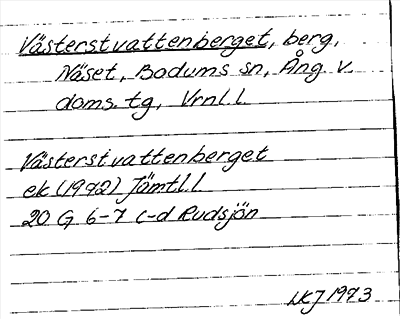 Västerstvattenberget, berg,
Näset, Bodums sn, Ång. v.
doms. tg, Vrnl. l.
Västerstvattenberget
ek (1972) Jämtl. l.
20 G 6-7 c-d Rudsjön
1973